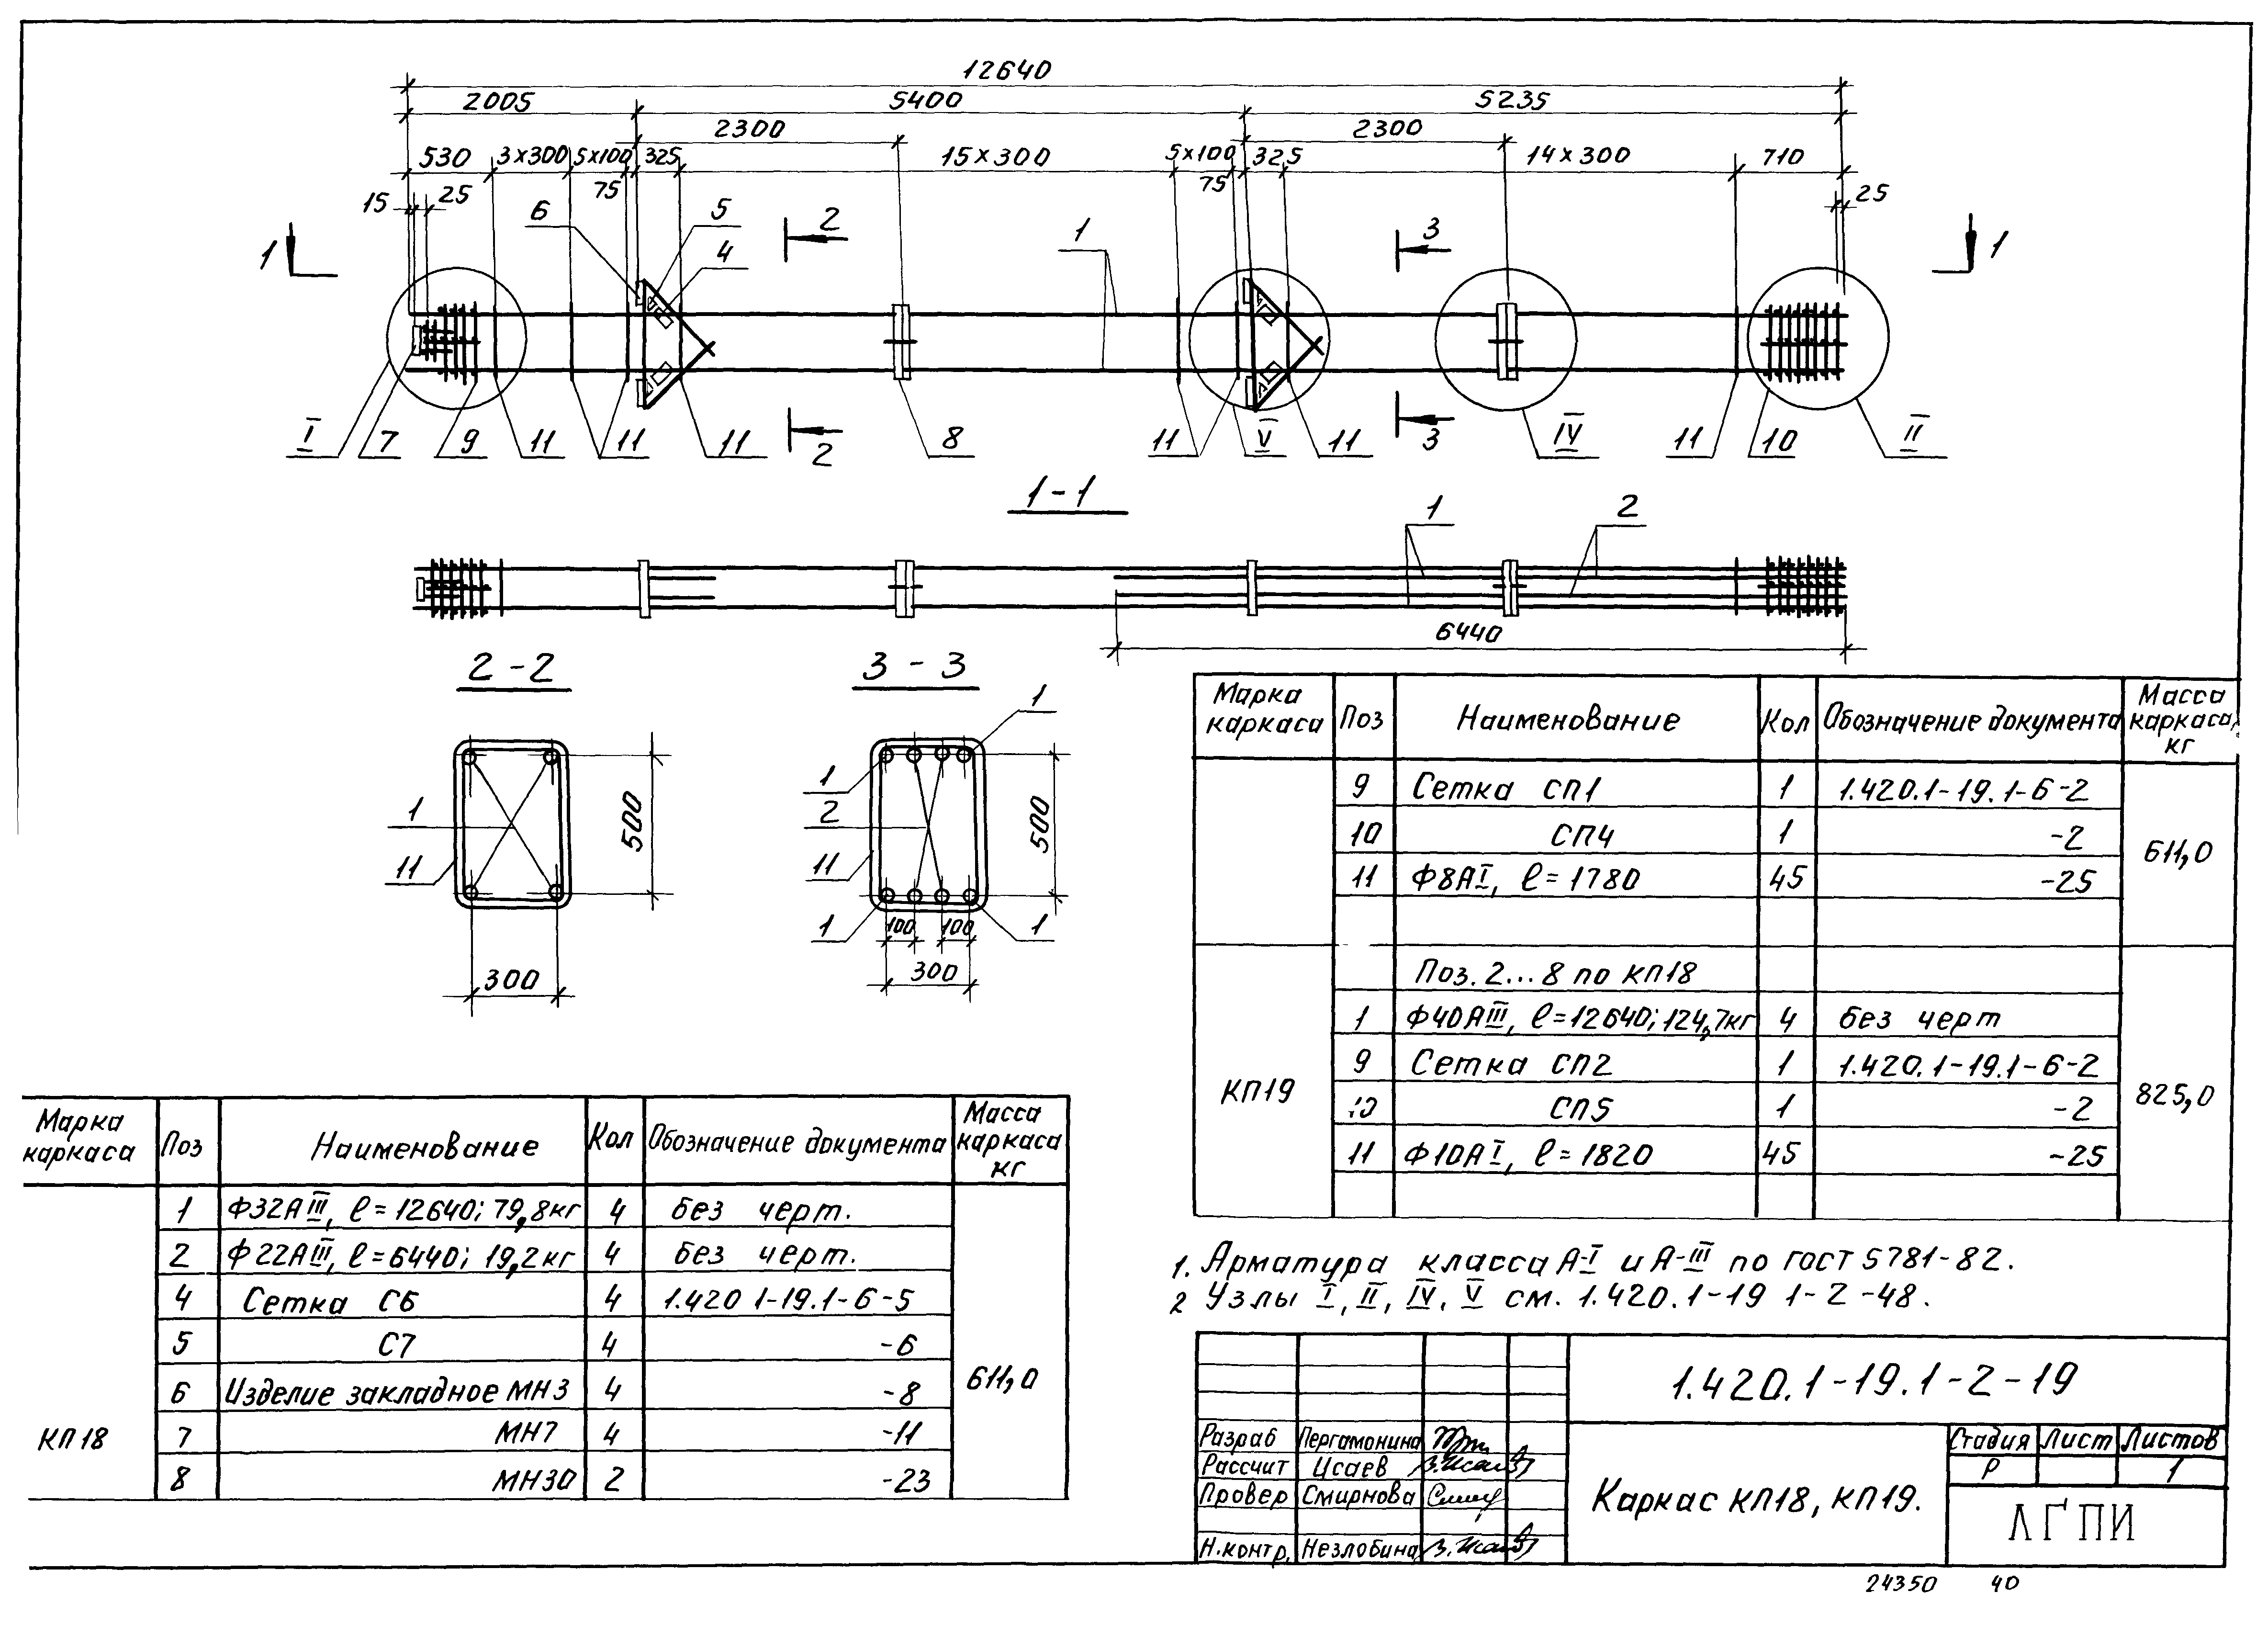 12640
2005 5400 5235
2300 2300
530 3×300 5×100 325 15×300 5×100 325 14×300 710
75 75
15 25 25
6 5 4 2 1 3
1 1
I 7 9 11 11 11 2 8 11 V 11 3 IV 11 10 II
1-1
1 2
6440
2-2 3-3
1
1
1 2
11 11
500 500
1 100 100 1
300 300
Марка каркаса Поз Наименование Кол Обозначение документа Масса каркаса, кг
9 Сетка СП1 1 1.420.1-19.1-6-2
10 СП4 1 -2
11 Ф8АI, ℓ=1780 45 -25
611,0
Поз. 2...8 по КП18
1 Ф40АIII, ℓ=12640; 124,7кг 4 без черт
9 Сетка СП2 1 1.420.1-19.1-6-2
КП19
10 СП5 1 -2
825,0
11 Ф10АI, ℓ=1820 45 -25
Марка каркаса Поз Наименование Кол Обозначение документа Масса каркаса кг
1 Ф32АIII, ℓ=12640; 79,8кг 4 без черт.
2 Ф22АIII, ℓ=6440; 19,2кг 4 без черт.
4 Сетка С6 4 1.420 1-19.1-6-5
5 С7 4 -6
6 Изделие закладное МН3 4 -8
611,0
КП18
7 МН7 4 -11
8 МН30 2 -23
1. Арматура класса А-I и А-III по гост 5781-82.
2 Узлы I, II, IV, V см. 1.420.1-19 1-2-48.
1.420.1-19.1-2-19
Разраб Пергамонина
Рассчит Исаев
Провер Смирнова
Н.контр. Незлобина
Каркас КП18, КП19.
Стадия Лист Листов
Р 1
ЛГПИ
24350 40